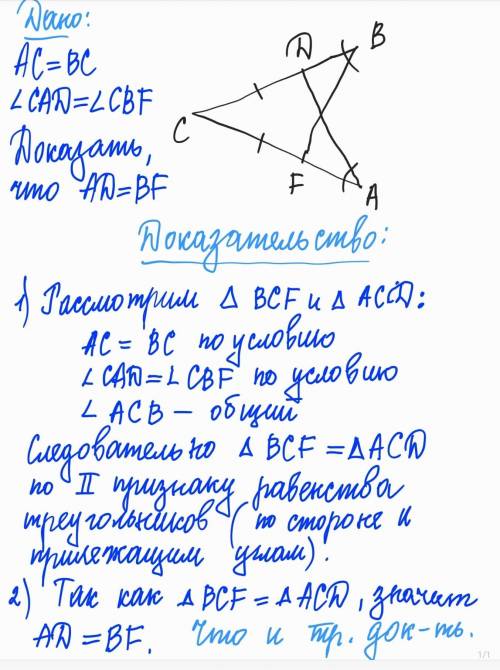 Дано:
AC=BC
∠CAD=∠CBF
Доказать,
что AD=BF
D
B
C
F
A
Доказательство:
1) Рассмотрим Δ BCF и Δ ACD:
AC = BC по условию
∠CAD=∠CBF по условию
∠ ACB – общий
Следовательно Δ BCF = ΔACD
по II признаку равенства
треугольников (по стороне и
прилежащим углам).
2) Так как Δ BCF = Δ ACD, значит
AD = BF. Что и тр. док-ть.
1/1